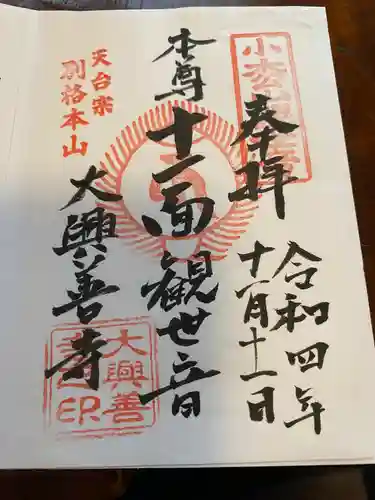 奉拝
令和四年
十一月十一日
本尊
十一面観世音
天台宗
別格本山
大興善寺
大興善
寺之印